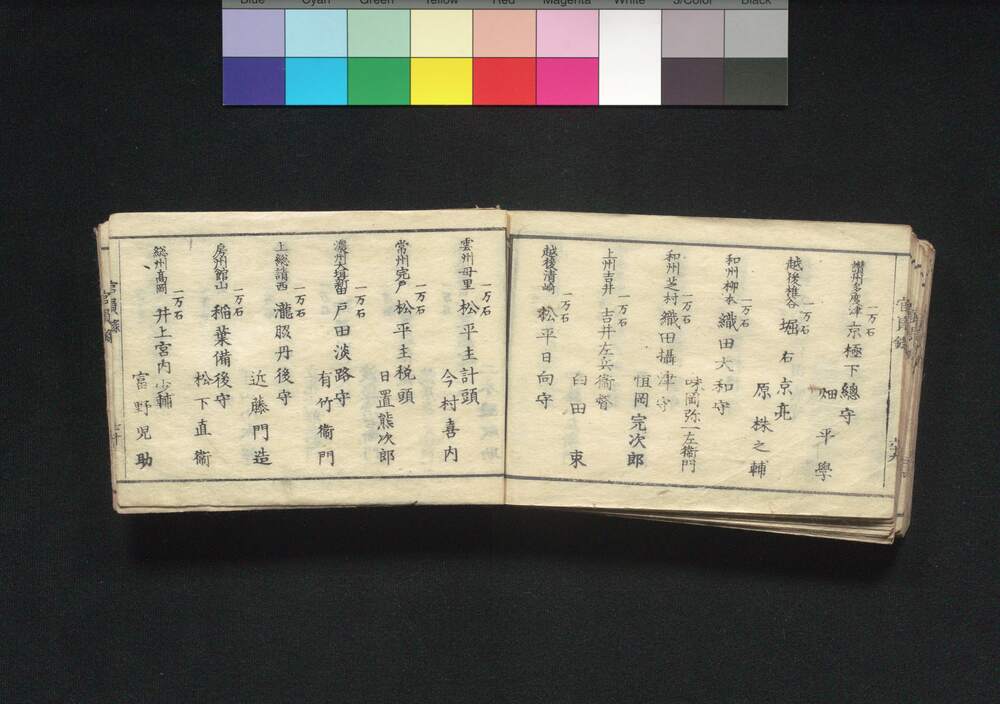 Blue Cyan Green Yellow Red Magenta White 3/Color Black
讃州多度津 一万石 京極下總守
畑平學
越後椎谷 一万石 堀右京亮
原株之輔
和州柳本 一万石 織田大和守
和州芝村 一万石 織田攝津守
味岡弥一左衞門
上州吉井 一万石 吉井左兵衞督
恒岡完次郎
越後清崎 一万石 松平日向守
白田束
雲州母里 一万石 松平主計頭
今村喜内
常州宍戸 一万石 松平主税頭
日置熊次郎
濃州大垣新田 一万石 戸田淡路守
有竹衞門
上總請西 一万石 瀧脇丹後守
近藤門造
房州館山 一万石 稲葉備後守
松下直衞
総州高岡 一万石 井上宮内少輔
富野児助
官員録
七十